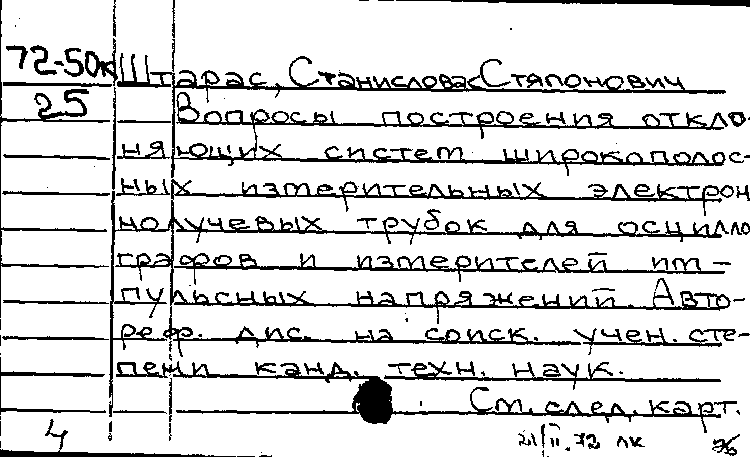 72-50к Штарас, Станисловас Стяпонович
25 Вопросы построения откло-
няющих систем широкополос-
ных измерительных электрон
нолучевых трубок для осцилло
графов и измерителей им-
пульсных напряжений. Авто-
реф. дис. на соиск. учен. сте-
пени канд. техн. наук.
См. след. карт.
4 21/II.72 лк